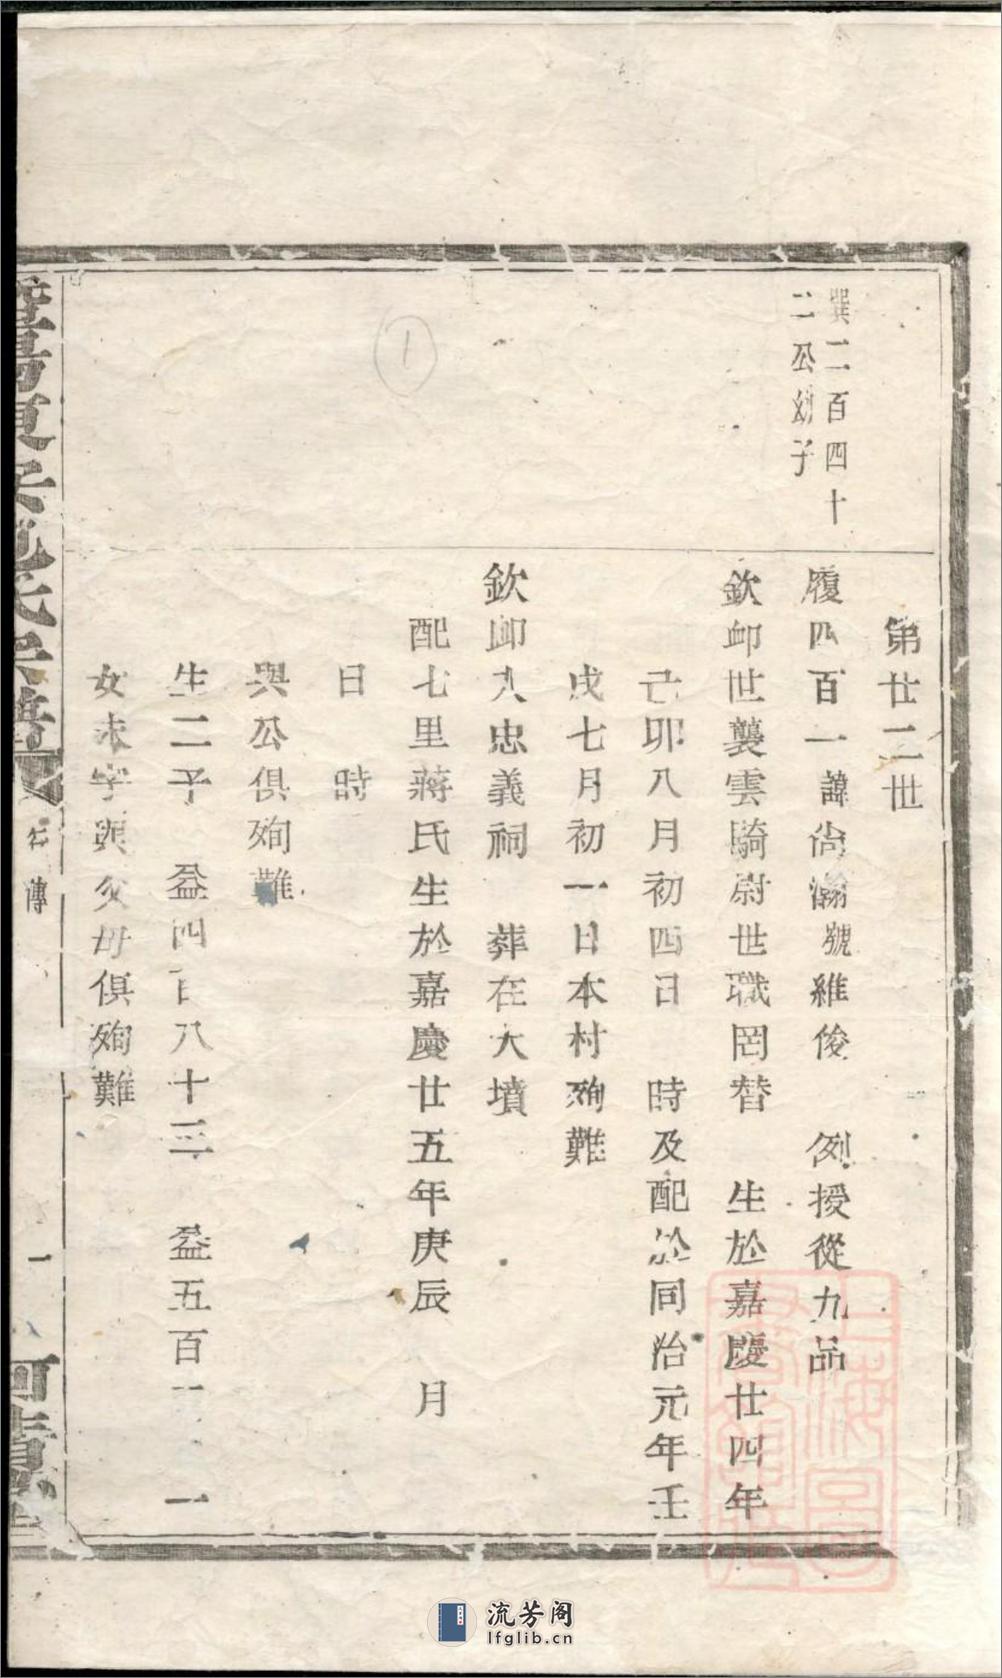 第廿二世
巽二百四十
二公幼子
履四百一諱尙瀚號維俊 例授從九品
欽卹世襲雲騎尉世職罔替 生於嘉慶廿四年
己卯八月初四日 時及配於同治元年壬
戌七月初一日本村殉難
欽卹入忠義祠 葬在大墳
配七里蔣氏生於嘉慶廿五年庚辰 月
日 時
與公俱殉難
生二子 益四百八十三 益五百 一
女未字與父母俱殉難
氏宗譜
傳
一
流芳阁
lfglib.cn